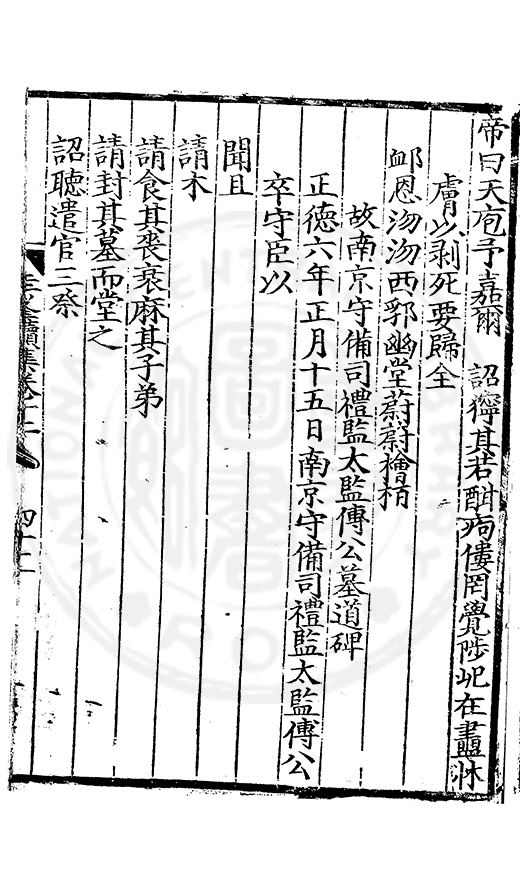 帝曰天庖予嘉爾　詔獰其若酣痀僂罔覺陟屺在衋牀
膚以剥死要歸全
卹恩沕沕西郛幽堂蔚蔚檜栢
故南京守備司禮監太監傅公墓道碑
正德六年正月十五日南京守備司禮監太監傅公
卒守臣以
聞且
請木
請食其丧衰麻其子弟
請封其墓而堂之
詔聽遣官三祭
續集卷十二
四十二